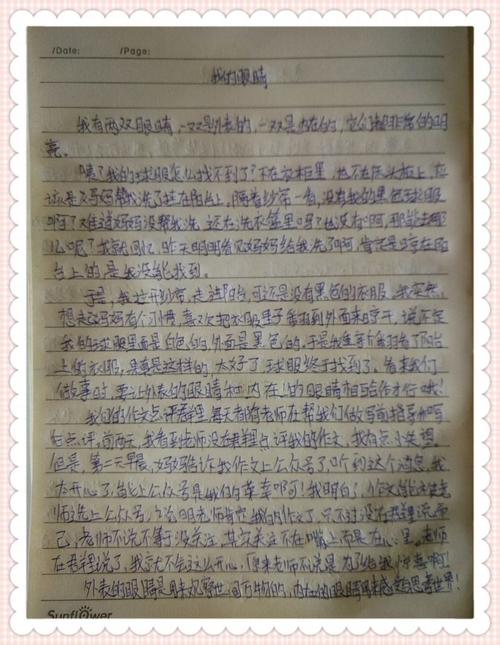 /Date: /Page:
我的眼睛
我有两双眼睛,一双是外表的,一双是内在的,它们都非常的明
亮。
咦?我的球服怎么找不到了?不在衣柜里,也不在床头柜上,应
该是妈妈帮我洗了挂在阳台上。隔着纱帘一看,没有我的黑色球服
啊?难道妈妈没帮我洗,还在洗衣篓里吗?也没有啊,那能去哪
么呢?我就回忆,昨天明明看见妈妈给我洗了啊,肯定是晾在阳
台上的,是我没能找到。
于是,我拉开纱帘,走进阳台,可还是没有黑色的衣服,我突然
想起妈妈有个习惯,喜欢把衣服里子翻到外面来晾干,说不定
我的球服里面是白色的,外面是黑色的。于是我重新查看了阳台
上的衣服,果真是这样的,太好了,球服终于找到了。看来我们
做事时,要让外表的眼睛和内在的眼睛相互合作才行哦!
我们的作文点评群里,每天都有老师在帮我们做写前指导和写
后点评,前两天,我看到老师没在群里点评我的作文,我有点小失望。
但是,第二天早晨,妈妈告诉我作文上公众号了,听到这个消息,我
太开心了,能上公众号是我们的荣幸啊!我明白了,作文能被老
师选上公众号,说明老师肯定我的作文了,只不过没在群里说而
已,老师不说不等于没关注,其实关注不在嘴上而是在心里。老师
在群里说了,我就不会这么开心,原来老师不说是为了给我惊喜啊!
外表的眼睛是用来观察世间万物的,内在的眼睛用来感悟思考世界!
Sunflower